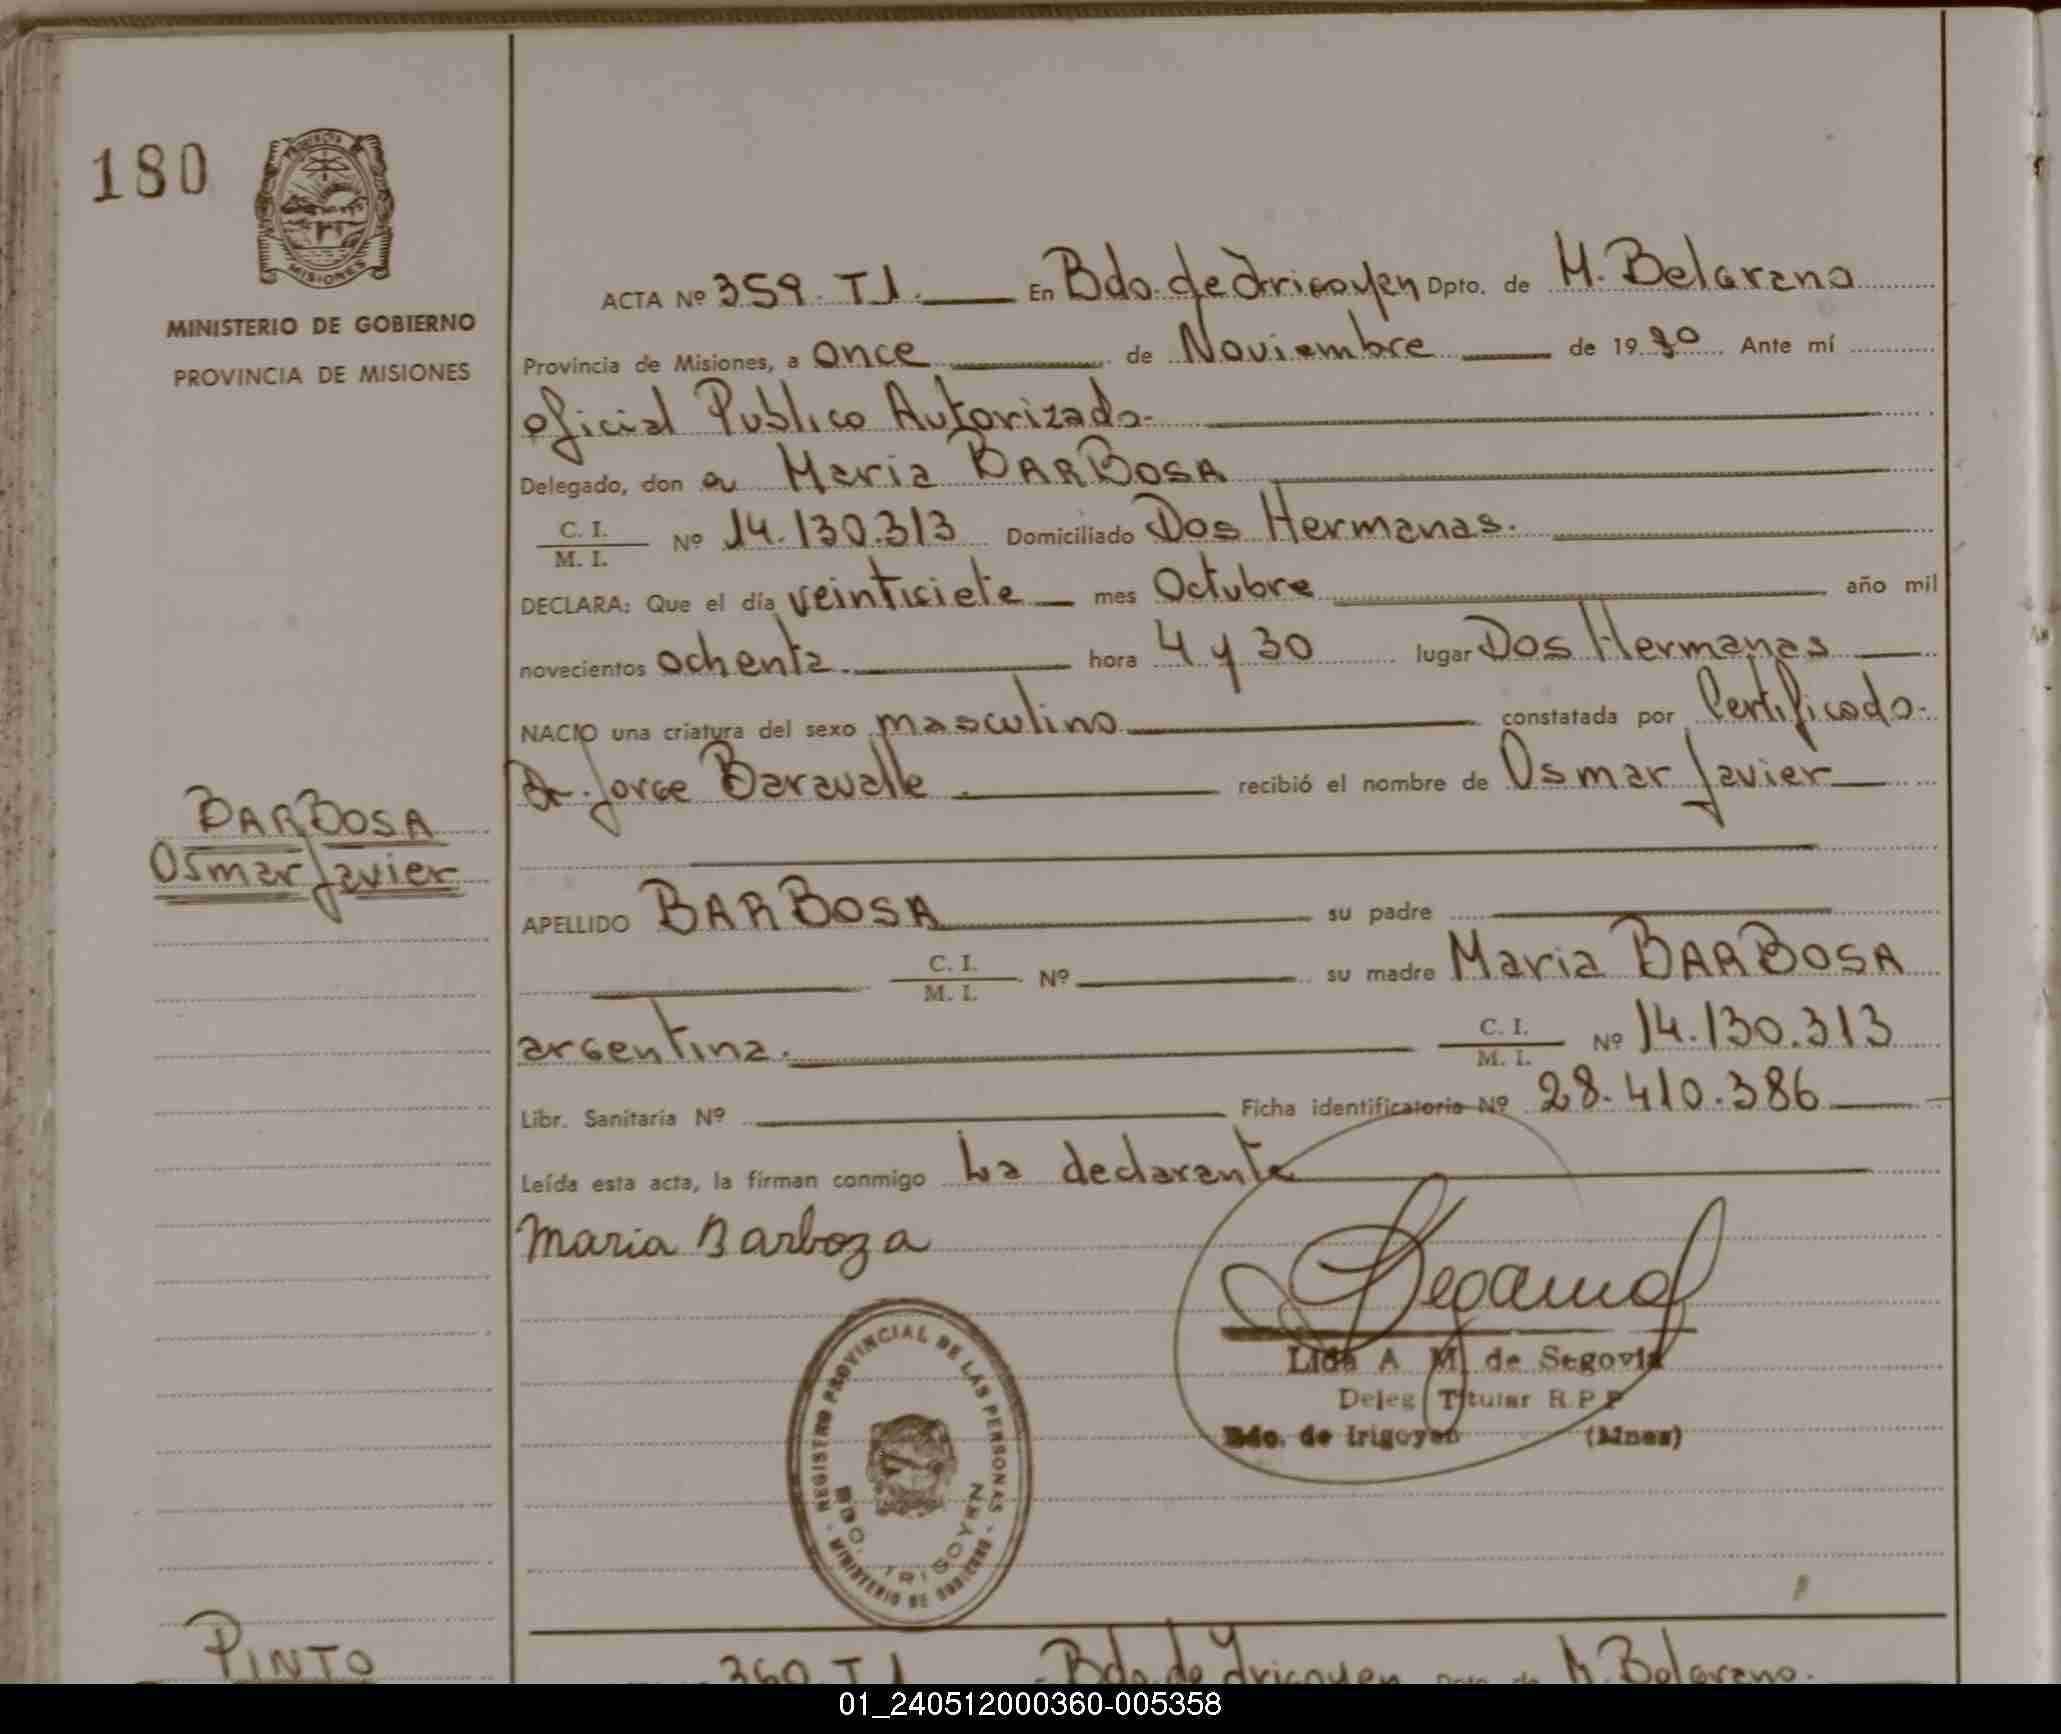 180
MISIONES
MINISTERIO DE GOBIERNO
PROVINCIA DE MISIONES
BARBOSA
Osmar Javier
PINTO
ACTA Nº 359. T1. En Bdo. de Irigoyen Dpto. de M. Belgrano
Provincia de Misiones, a once de Noviembre de 19 80 Ante mí
oficial Publico Autorizado.
Delegado, don a Maria BARBOSA
C. I.
M. I. Nº 14.130.313 Domiciliado Dos Hermanas.
DECLARA: Que el día veintisiete mes Octubre año mil
novecientos ochenta. hora 4 y 30 lugar Dos Hermanas
NACIO una criatura del sexo masculino constatada por Certificado.
Dr. Jorge Baravalle. recibió el nombre de Osmar Javier
APELLIDO BARBOSA su padre
C. I.
M. I. Nº su madre Maria BARBOSA
argentina. C. I.
M. I. Nº 14.130.313
Libr. Sanitaria Nº Ficha identificatoria Nº 28.410.386
Leída esta acta, la firman conmigo La declarante
Maria Barboza
Lida A M de Segovia
Deleg Titular R.P.P
Bdo. de Irigoyen (Mnes)
REGISTRO PROVINCIAL DE LAS PERSONAS
BDO. IRIGOYEN
MINISTERIO DE GOBIERNO
360 T1 Bdo. de Irigoyen Dpto. de M. Belgrano.
01_240512000360-005358